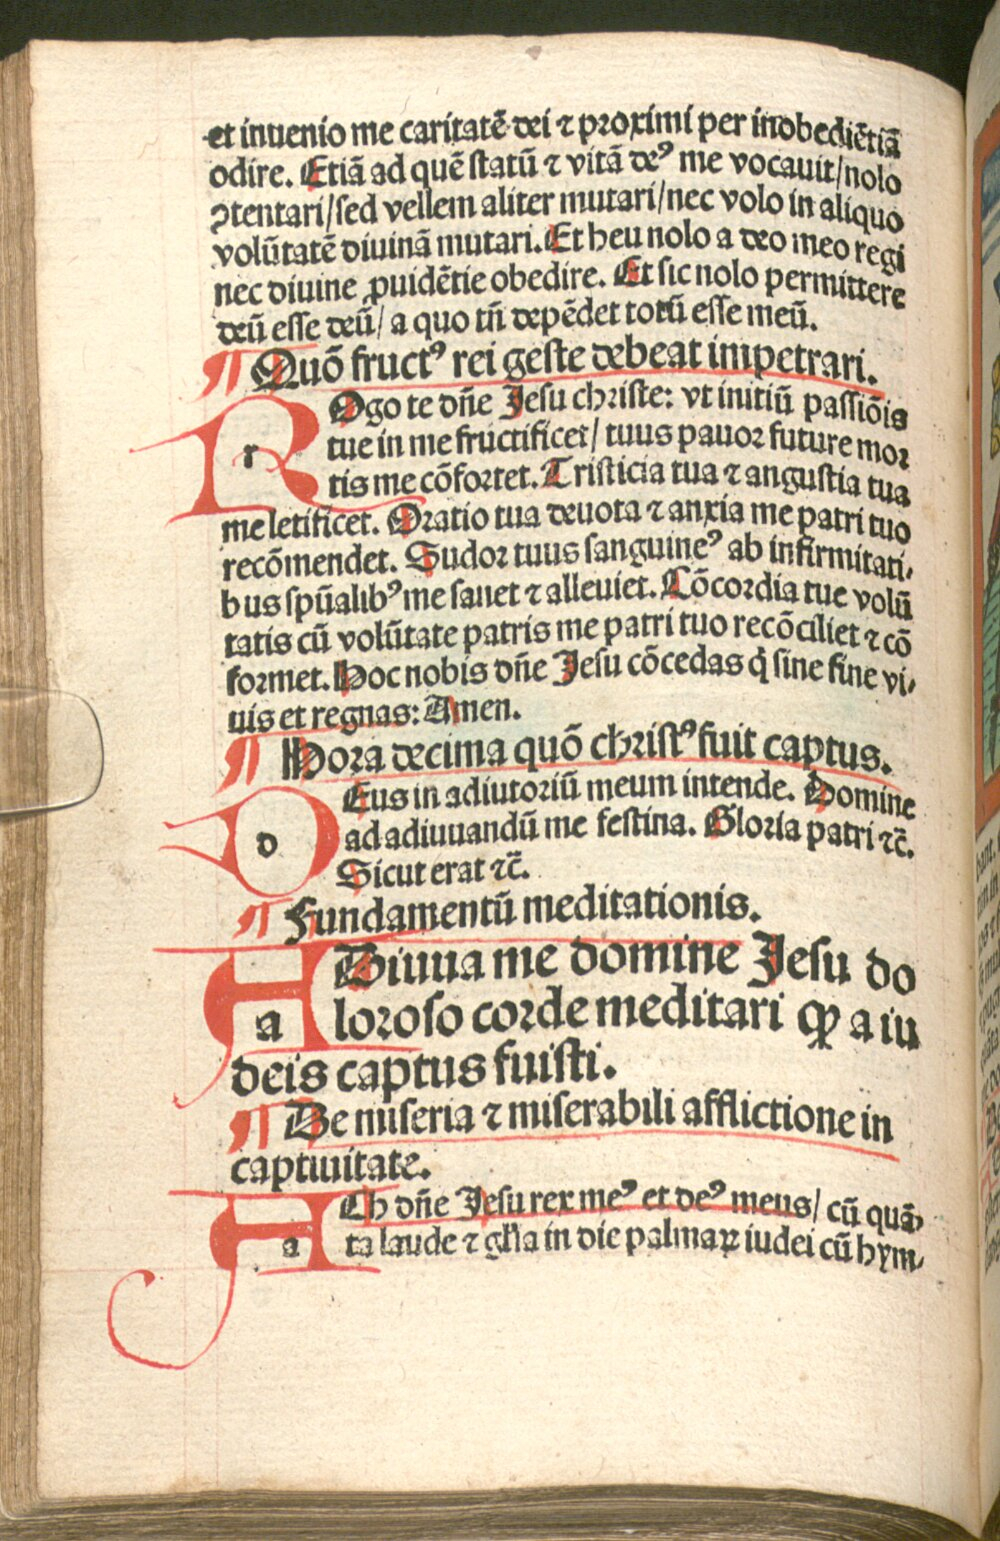 et inuenio me caritatē dei ⁊ proximi per inobediētiā
odire. Etiā ad quē statū ⁊ vitā deꝰ me vocauit/nolo
ꝯtentari/sed vellem aliter mutari/nec volo in aliquo
volūtatē diuinā mutari. Et heu nolo a deo meo regi
nec diuine ꝓuidētie obedire. Et sic nolo permittere
deū esse deū/ a quo tñ depēdet totū esse meū.
¶ Quō fructꝰ rei geste debeat impetrari.
rOgo te dñe Jesu christe: vt initiū passiōis
tue in me fructificet/ tuus pauor future mor
tis me cōfortet. Tristicia tua ⁊ angustia tua
me letificet. Oratio tua deuota ⁊ anxia me patri tuo
recōmendet. Sudor tuus sanguineꝰ ab infirmitati-
bus spūalibꝰ me sanet ⁊ alleuiet. Cōcordia tue volū
tatis cū volūtate patris me patri tuo recōciliet ⁊ cō
formet. Hoc nobis dñe Jesu cōcedas q̇ sine fine vi-
uis et regnas: Amen.
¶ Hora decima quō christꝰ fuit captus.
dEus in adiutoriū meum intende. Domine
ad adiuuandū me festina. Gloria patri ⁊c̄.
Sicut erat ⁊c̄.
¶ Fundamentū meditationis.
aDiuua me domine Jesu do
loroso corde meditari ꝙ a iu
deis captus fuisti.
¶ De miseria ⁊ miserabili afflictione in
captiuitate.
aCh dñe Jesu rex meꝰ et deꝰ meus/ cū quā-
ta laude ⁊ gl̄ia in die palmaꝝ iudei cū hym-